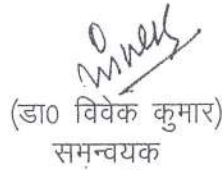 (डा0 विवेक कुमार)
समन्वयक